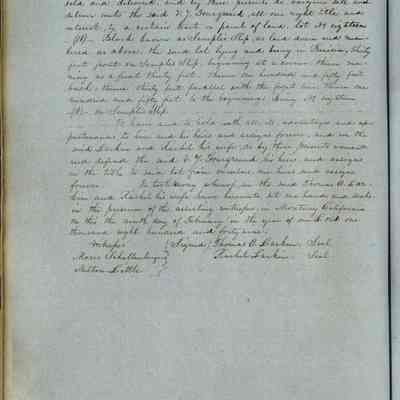 sold and delivered, and by these presents do assigns sell and
deliver unto the said V. J. Fourgeaud, all our right title and
interest, to a certain tract or parcel of land, lot No eighteen
(18) - Block known as Semples Slip, as laid down and num-
bered as above, the said lot lying and being in Benicia, thirty
feet front on Semples Slip, beginning at a corner, thence run-
ning as a front thirty feet, thence one hundred and fifty feet
back, thence thirty feet parallel with the front line thence one
hundred and fifty feet to the beginning. Being No eighteen
(18) on Semples Slip.
To have and to hold with all its advantages and ap-
purtenances to him and his heirs and assigns forever, and we the
said Larkin and Rachel his wife, do by these presents warrant
and defend the said V. J. Fourgeaud his heirs, and assigns
in the title to said lot from ourselves our heirs and assigns
forever. In testimony whereof we the said Thomas O. Lar-
kin and Rachel his wife have hereunto set our hands and seals
in the presence of the attesting witnesses in Monterey California
on this the ninth day of February in the year of our Lord one
thousand eight hundred and forty nine.
Witness (Signed) Thomas O. Larkin Seal
Moses Schallenberger Rachel Larkin Seal
Milton Little